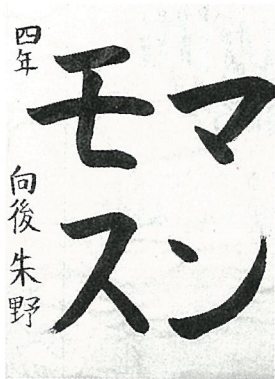 マン
モス
四年 向後朱野